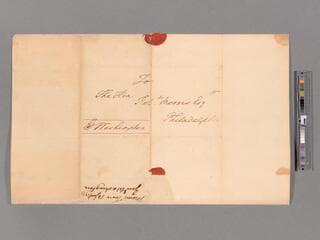 To
The Hon
Robt Morris Esqr
Philadelphi
G: Washington
Genl Washington